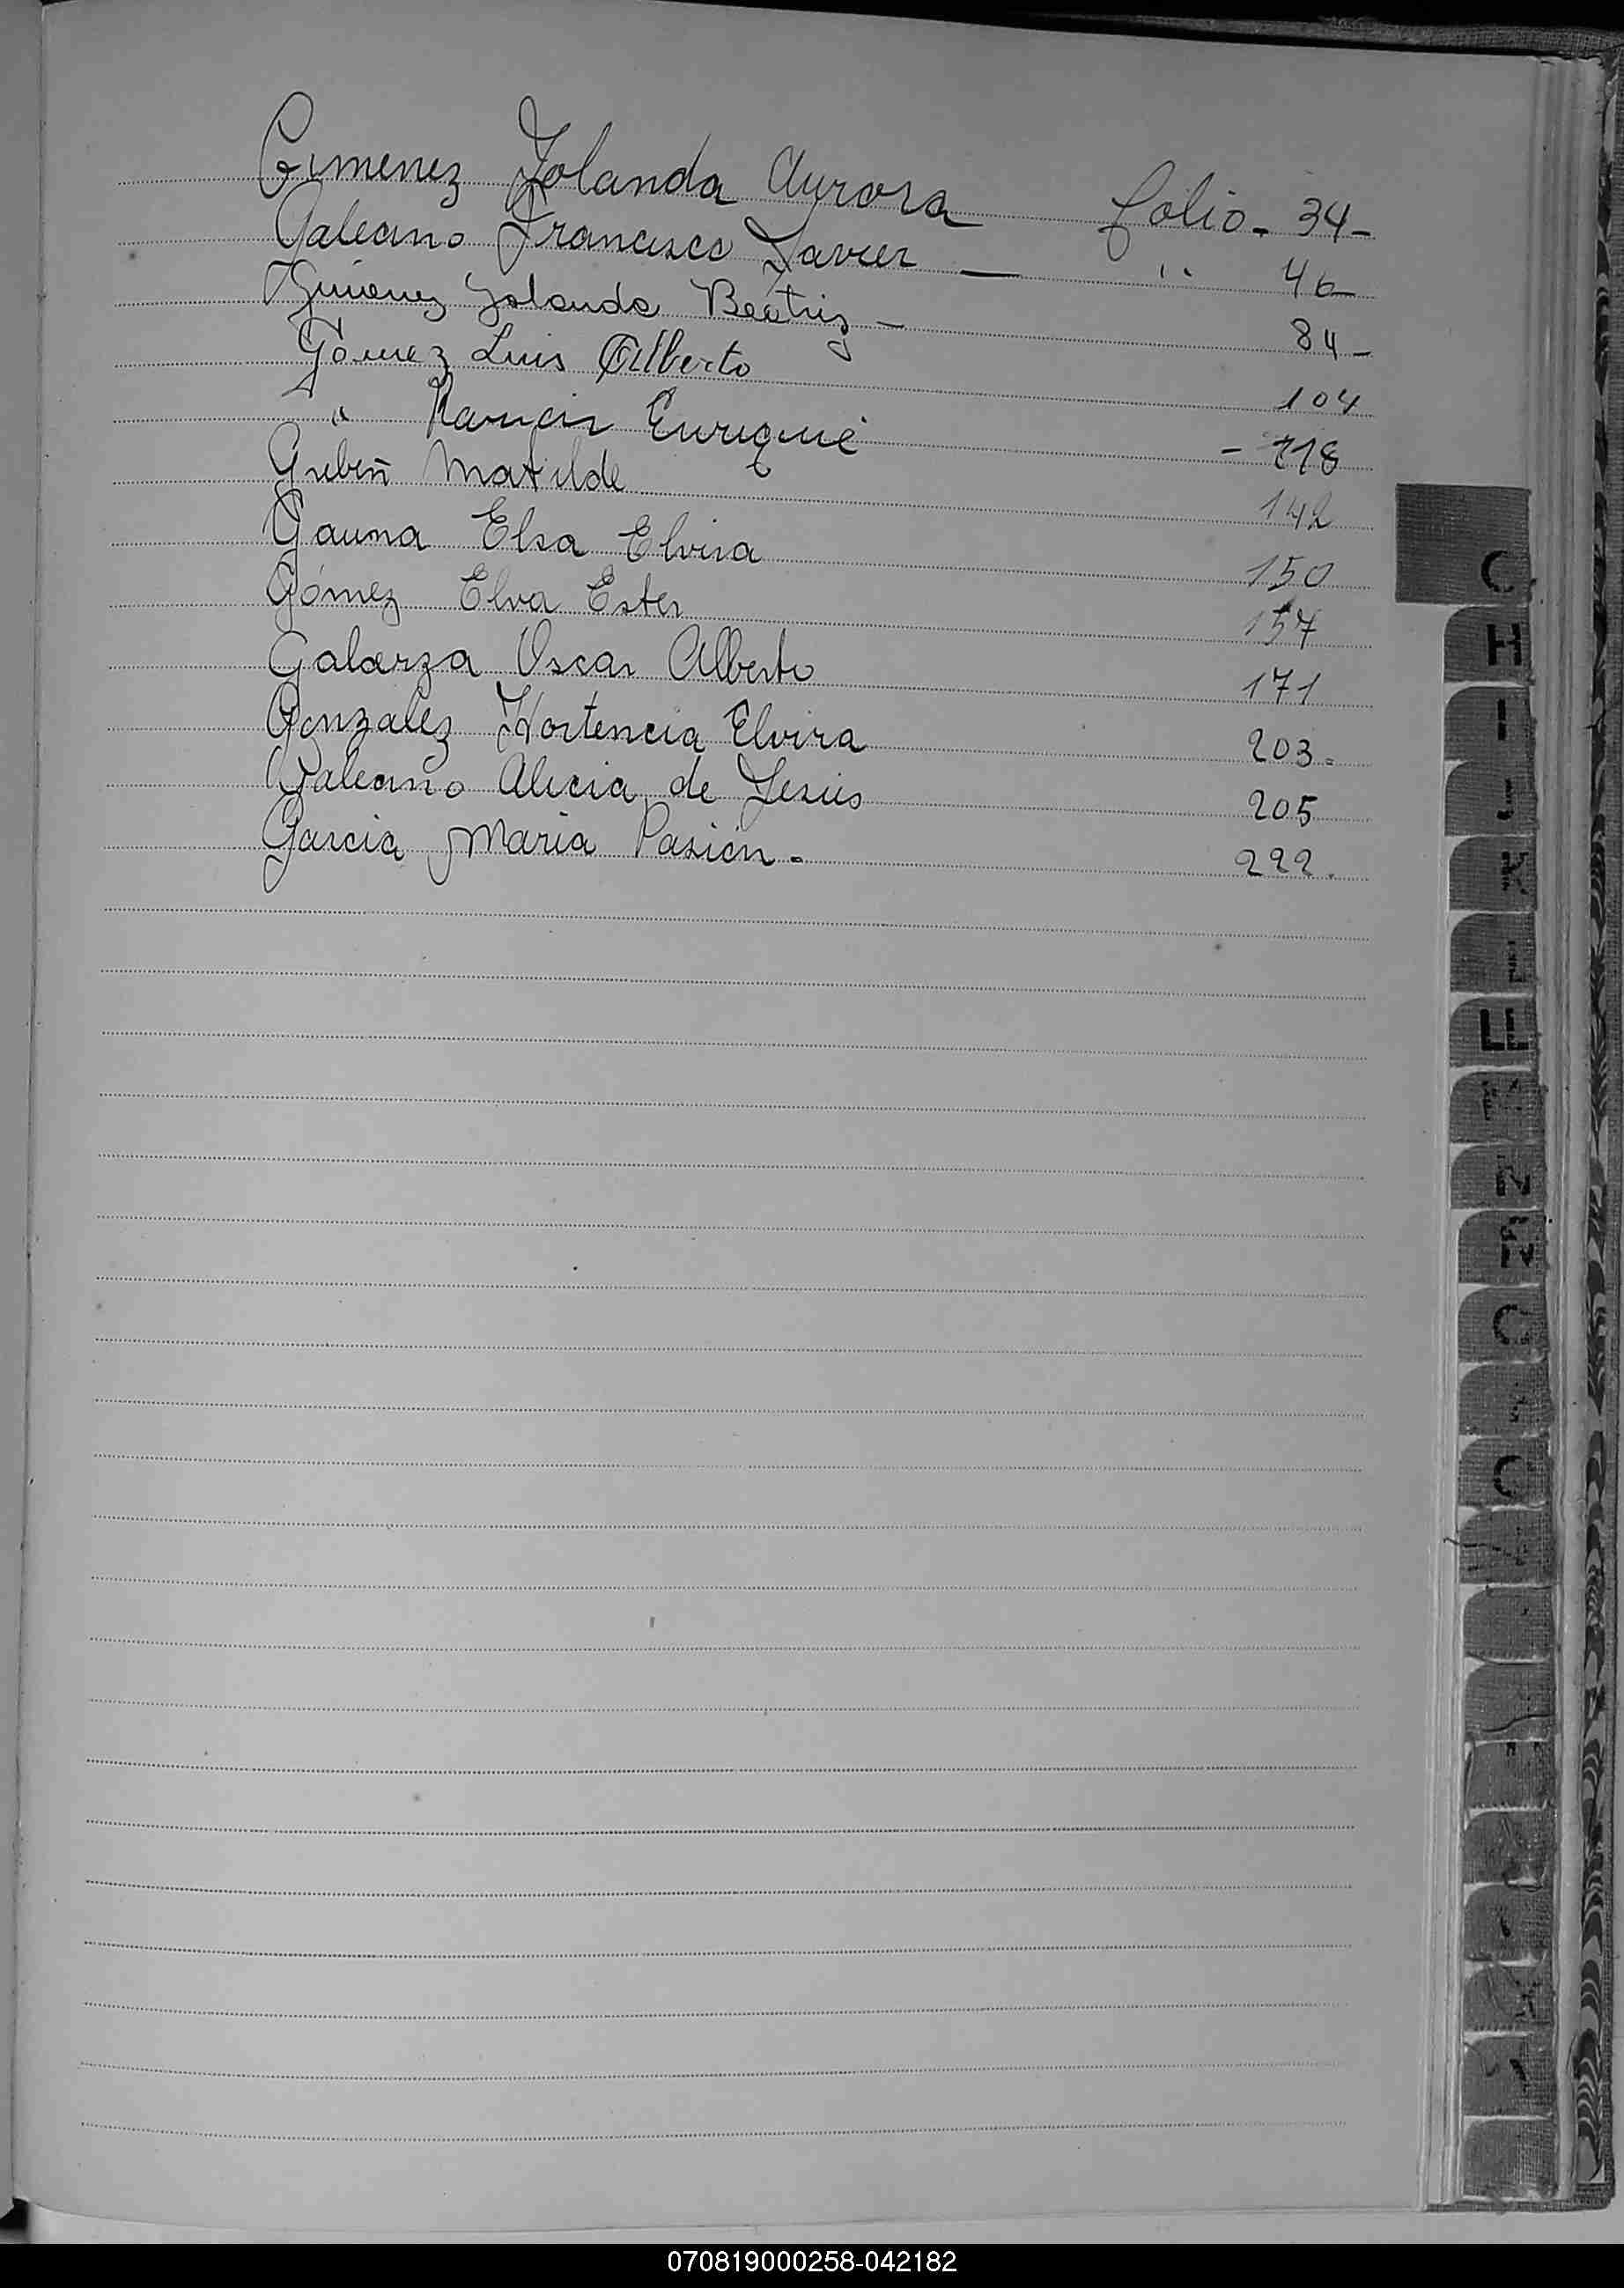 Gimenez Yolanda Aurora folio - 34 -
Galeano Francisco Javier — " 46
Gimenez Yolanda Beatriz - 84 -
Gómez Luis Alberto 104
" Ramón Enrique - 118
Matilde 142
Gauna Elsa Elvira 150
Gómez Elva Ester 157
Galarza Oscar Alberto 171
Gonzalez Hortencia Elvira 203 -
Galeano Alicia de Jesús 205
Garcia Maria Pasión - 222 .
G
H
I
J
K
L
LL
M
N
Ñ
O
070819000258-042182